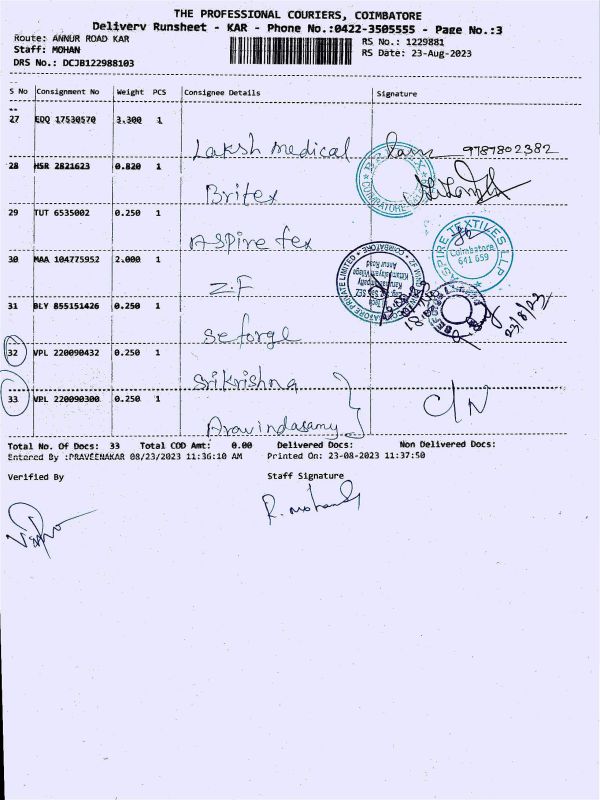 THE PROFESSIONAL COURIERS, COIMBATORE
Delivery Runsheet - KAR - Phone No.:0422-3505555 - Page No.:3
Route: ANNUR ROAD KAR RS No.: 1229881
Staff: MOHAN RS Date: 23-Aug-2023
DRS No.: DCJB122988103
S No Consignment No Weight PCS Consignee Details Signature
27 EDQ 17530570 3.300 1
Laksh medical 9787802382
28 HSR 2821623 0.820 1
Britex
29 TUT 6535002 0.250 1
Aspire tex
ASPIRE TEXTILES LLP
Coimbatore
641 659
30 MAA 104775952 2.000 1
Z.F
31 BLY 855151426 0.250 1
seforge
23/8/23
32 VPL 220090432 0.250 1
Srikrishna
33 VPL 220090300 0.250 1
C/N
Aravindasamy
Total No. Of Docs: 33 Total COD Amt: 0.00 Delivered Docs: Non Delivered Docs:
Entered By :PRAVEENAKAR 08/23/2023 11:36:10 AM Printed On: 23-08-2023 11:37:50
Verified By Staff Signature
R. mohan